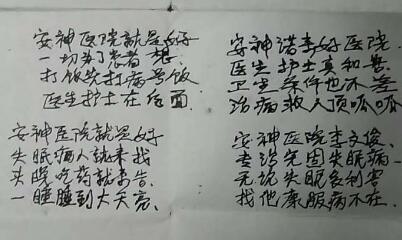 安神医院就是好
一切为了患者想.
打饭先打病号饭
医生护士在后面.
安神医院就是好
失眠病人就来找
头晚吃药就奏告.
一睡睡到大天亮.
安神诺李好医院.
医生护士真和善.
卫生条件也不差
治病救人顶呱呱
安神医院李文俊、
专治顽固失眠病
无论失眠多利害
找他康服病不在.